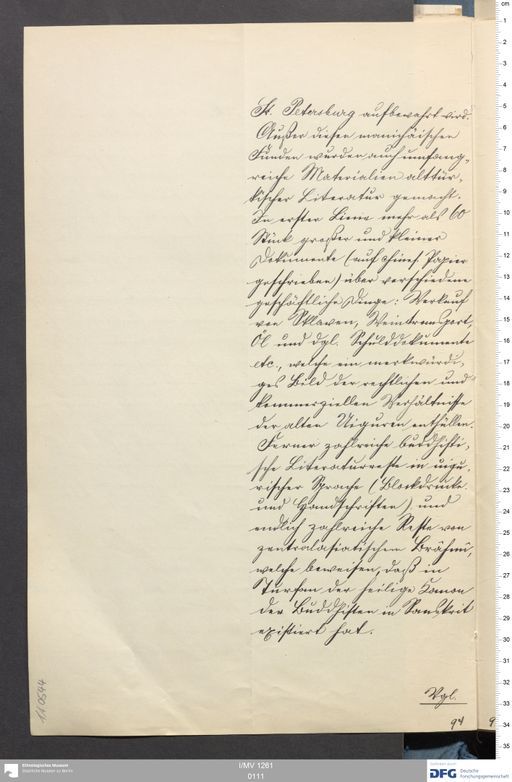 St. Petersburg aufbewahrt wird.
Außer diesen manichäischen
Funden wurden auch umfang-
reiche Materialien alttür-
kischer Literatur gemacht.
In erster Linie mehr als 60
Stück großer und kleiner
Dokumente (auf chines. Papier
geschrieben) über verschiedene
geschäftliche Dinge: Verkauf
von Sklaven, Weintransport,
Öl und dgl. Schulddokumente
etc., welche ein merkwürdi-
ges Bild der rechtlichen und
kommerziellen Verhältnisse
der alten Uiguren enthüllen.
Ferner zahlreiche buddhisti-
sche Literaturreste in uigu-
rischer Sprache (Blockdrucke
und Handschriften) und
endlich zahlreiche Reste von
zentralasiatischem Brāhmī,
welche beweisen, daß in
Turfan der heilige Kanon
der Buddhisten in Sanskrit
existiert hat.
Vgl.
94
I/MV 1261
0111
Ethnologisches Museum
Staatliche Museen zu Berlin
DFG Deutsche
Forschungsgemeinschaft